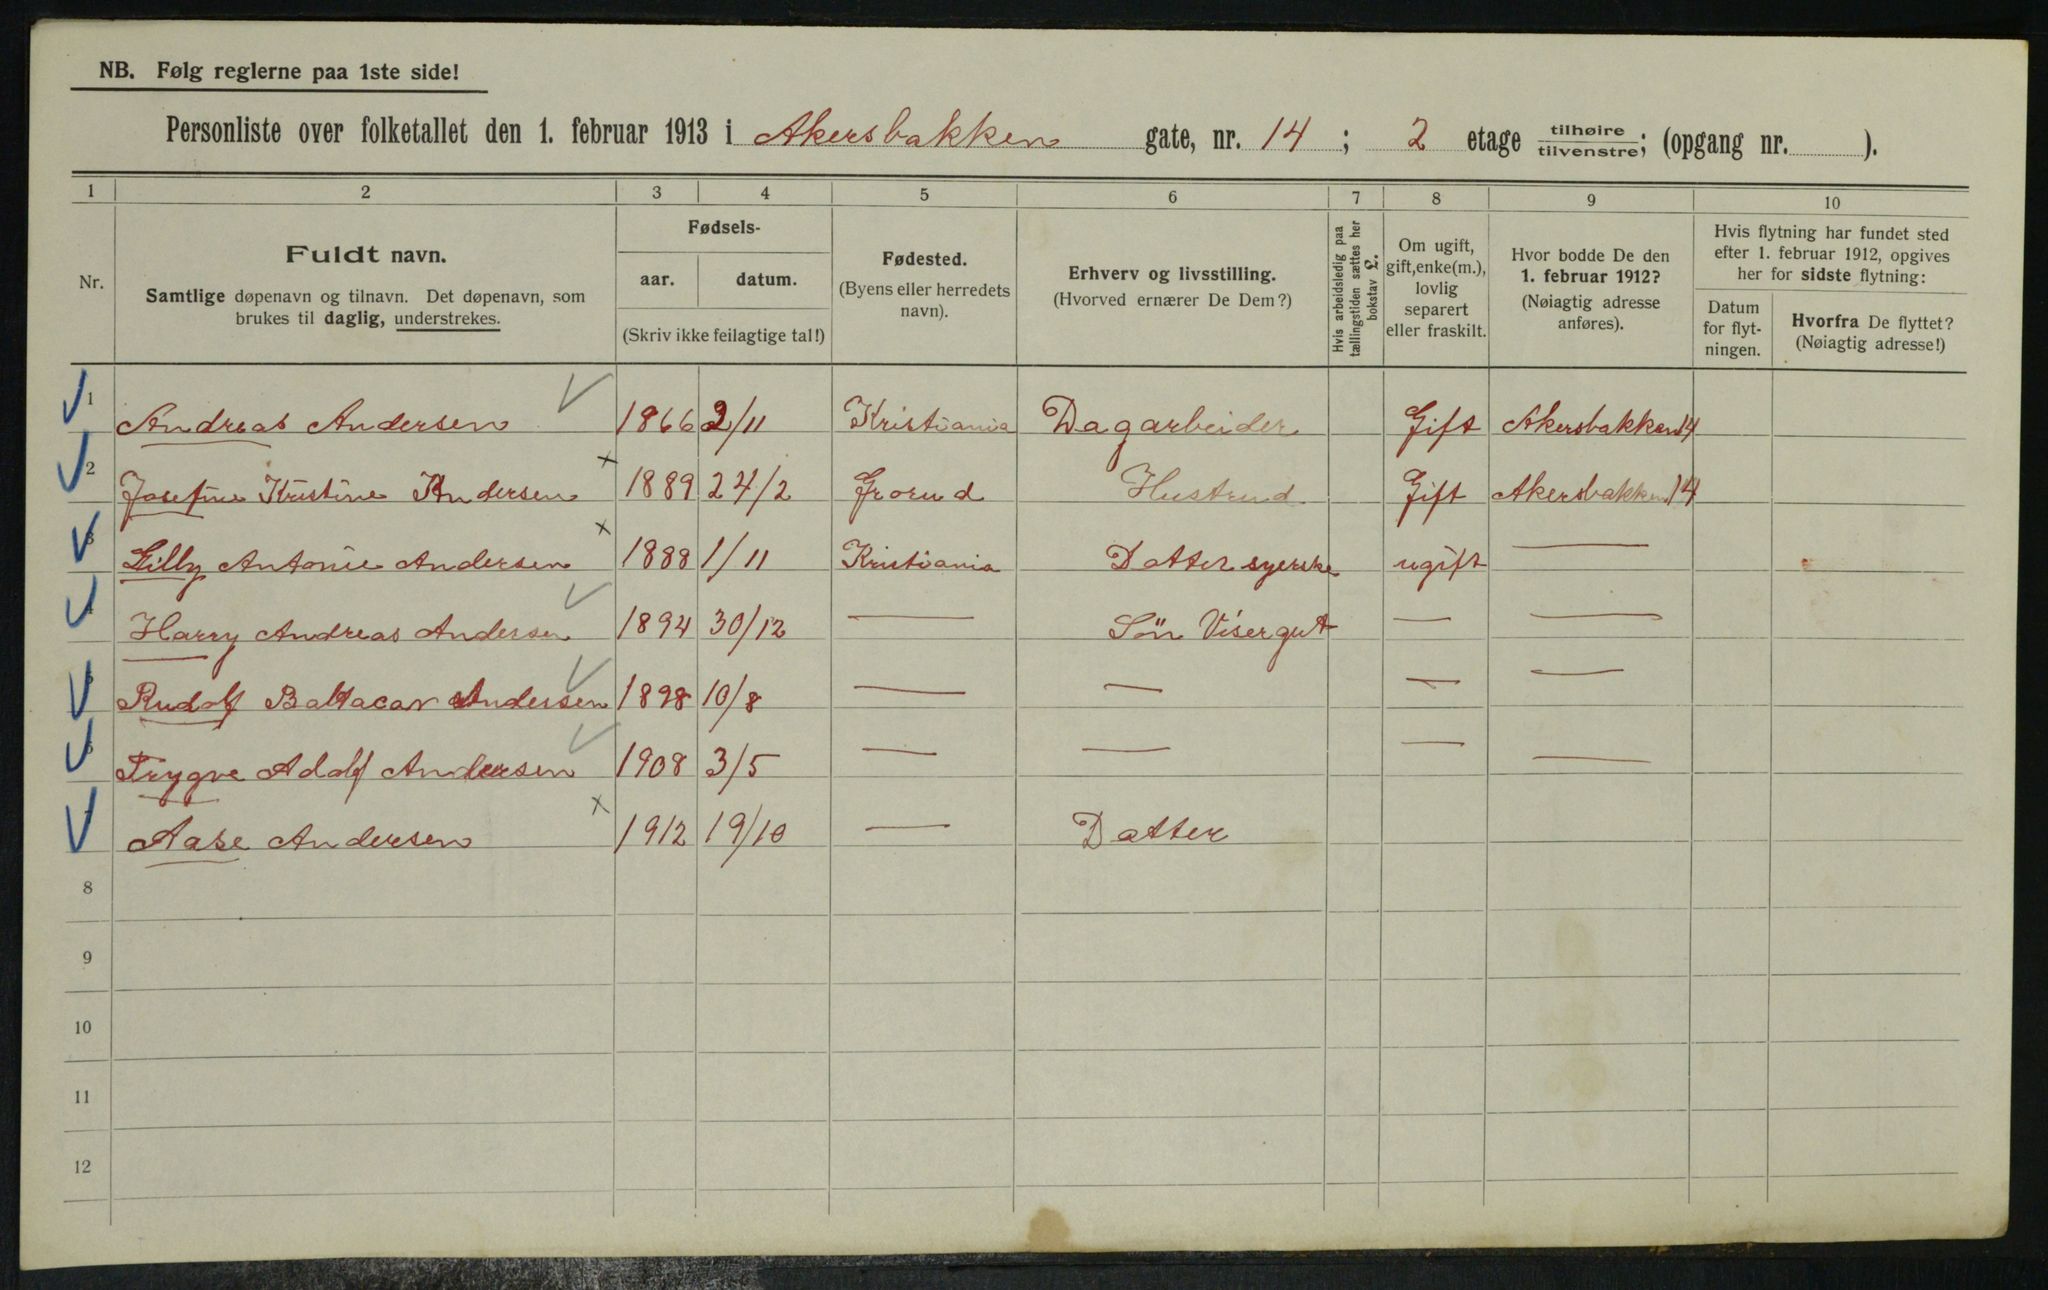 NB. Følg reglerne paa 1ste side!
Personliste over folketallet den 1. februar 1913 i Akersbakken gate, nr. 14 ; 2 etage tilhøire/tilvenstre; (opgang nr. ).
1 2 3 4 5 6 7 8 9 10
Nr.
Fuldt navn.
Samtlige døpenavn og tilnavn. Det døpenavn, som
brukes til daglig, understrekes.
Fødsels-
aar. datum.
(Skriv ikke feilagtige tal!)
Fødested.
(Byens eller herredets
navn).
Erhverv og livsstilling.
(Hvorved ernærer De Dem?)
Hvis arbeidsledig paa
tællingstiden sættes her
bokstav L.
Om ugift,
gift, enke(m.),
lovlig
separert
eller fraskilt.
Hvor bodde De den
1. februar 1912?
(Nøiagtig adresse
anføres).
Hvis flytning har fundet sted
efter 1. februar 1912, opgives
her for sidste flytning:
Datum
for flyt-
ningen.
Hvorfra De flyttet?
(Nøiagtig adresse!)
1 Andreas Andersen 1866 2/11 Kristiania Dagarbeider Gift Akersbakken 14
2 Josefine Kristine Andersen 1889 24/2 Grorud Hustrud Gift Akersbakken 14
3 Lilly Antonie Andersen 1888 1/11 Kristiania Datter syerske ugift —
4 Harry Andreas Andersen 1894 30/12 — Søn Visergut — —
5 Rudolf Baltacar Andersen 1898 10/8 — — — —
6 Trygve Adolf Andersen 1908 3/5 — — — —
7 Aase Andersen 1912 19/10 — Datter
8
9
10
11
12